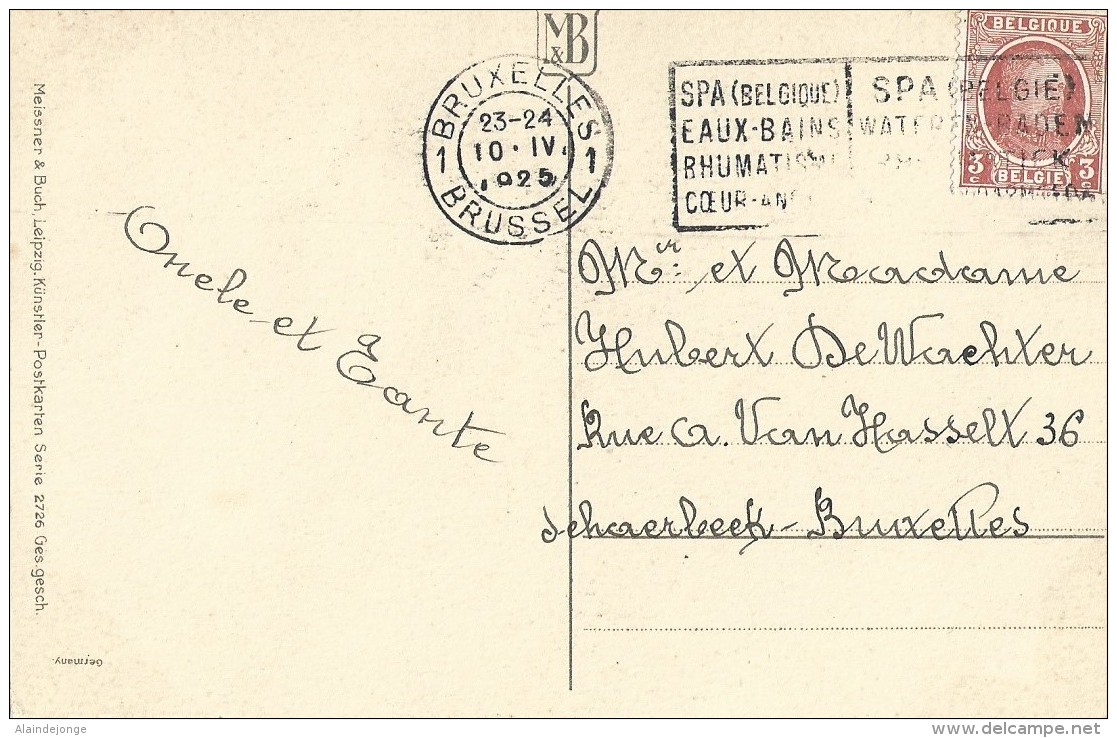 M&B
BRUXELLES
1 23-24 1
10·IV.
1925
BRUSSEL
SPA (BELGIQUE)
EAUX-BAINS
RHUMATISME
CŒUR-
SPA (BELGIË)
WATER EN BADEN
BELGIQUE
3c 3c
BELGIË
Oncle et Tante
Mr. et Madame
Hubert De Wachter
Rue A. Van Hasselt 36
Schaerbeek-Bruxelles
Meissner & Buch, Leipzig. Künstler-Postkarten Serie 2726 Ges. gesch.
Germany.
Alaindejonge
delcampe.net